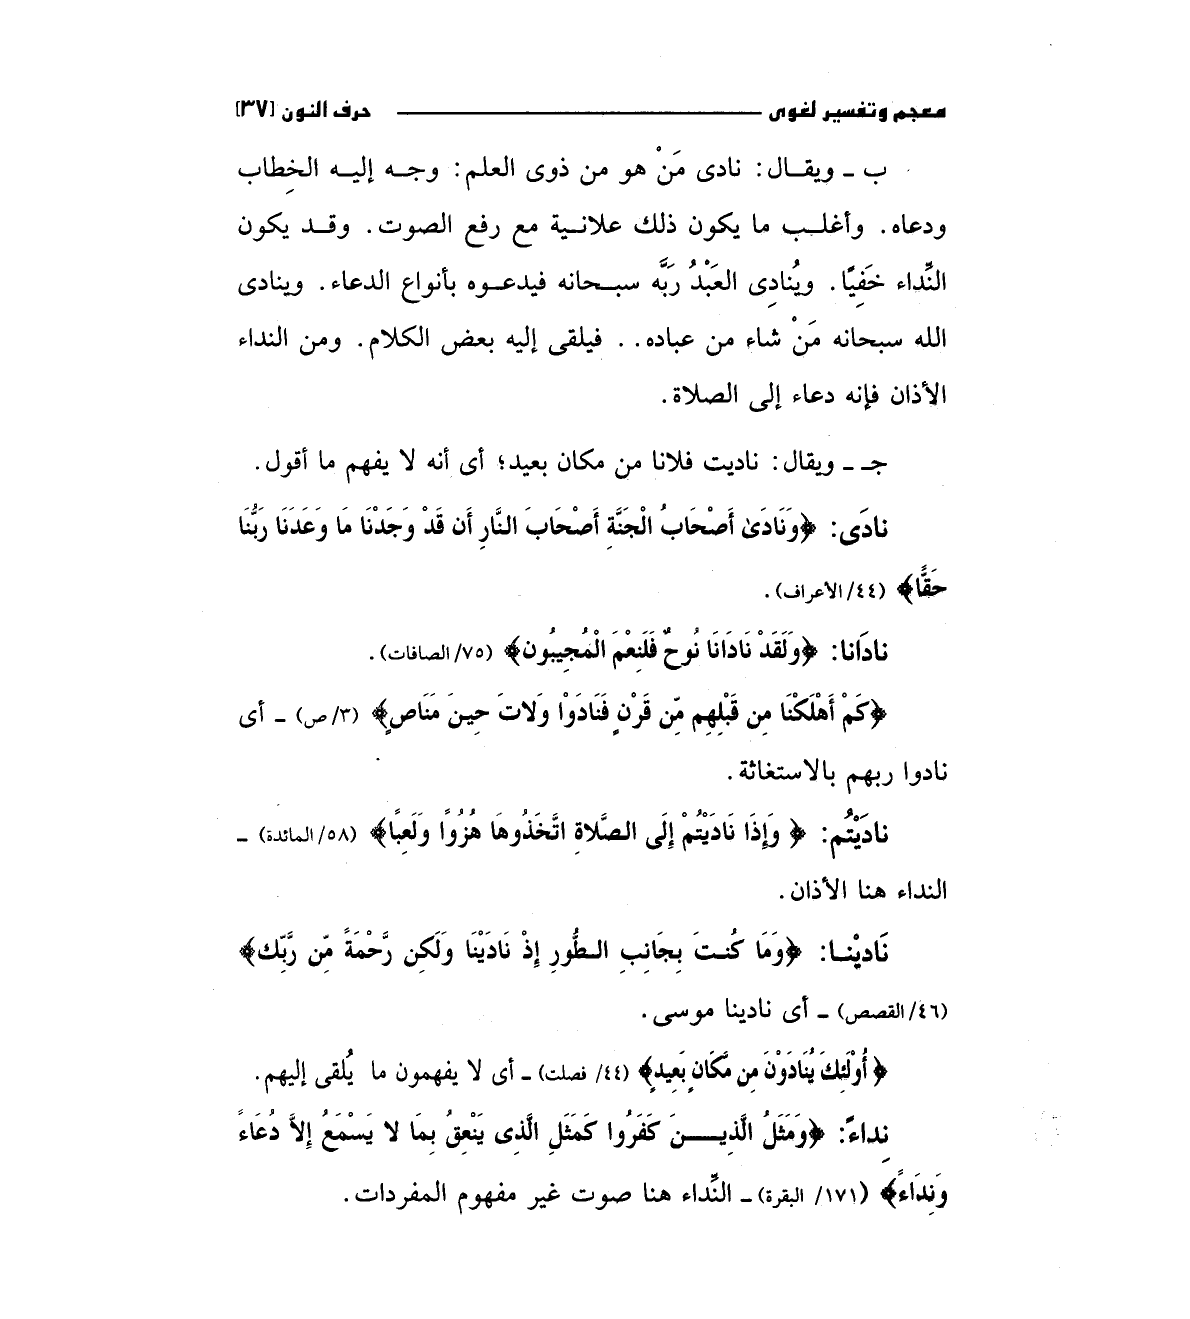 معجم وتفسير لغوى حرف النون [٣٧]
ب ـ ويقـال: نادى مَنْ هو من ذوى العلم: وجـه إليـه الخِطاب
ودعاه. وأغلـب ما يكون ذلك علانـية مع رفع الصوت. وقـد يكون
النِّداء خَفِيًّا. ويُنادِى العَبْدُ رَبَّه سبـحانه فيدعـوه بأنواع الدعاء. وينادى
الله سبحانه مَنْ شاء من عباده.. فيلقى إليه بعض الكلام. ومن النداء
الأذان فإنه دعاء إلى الصلاة.
جـ ـ ويقال: ناديت فلانا من مكان بعيد؛ أى أنه لا يفهم ما أقول.
نادَى: ﴿وَنَادَىٰ أَصْحَابُ الْجَنَّةِ أَصْحَابَ النَّارِ أَن قَدْ وَجَدْنَا مَا وَعَدَنَا رَبُّنَا
حَقًّا﴾ (٤٤/ الأعراف).
نادَانا: ﴿وَلَقَدْ نَادَانَا نُوحٌ فَلَنِعْمَ الْمُجِيبُون﴾ (٧٥/ الصافات).
﴿كَمْ أَهْلَكْنَا مِن قَبْلِهِم مِّن قَرْنٍ فَنَادَوْا وَلاتَ حِينَ مَنَاصٍ﴾ (٣/ ص) ـ أى
نادوا ربهم بالاستغاثة.
نادَيْتُم: ﴿ وَإِذَا نَادَيْتُمْ إِلَى الصَّلاةِ اتَّخَذُوهَا هُزُوًا وَلَعِبًا﴾ (٥٨/ المائدة) ـ
النداء هنا الأذان.
نَاديْنـا: ﴿وَمَا كُنـتَ بِجَانِبِ الـطُّورِ إِذْ نَادَيْنَا وَلَكِن رَّحْمَةً مِّن رَّبِّك﴾
(٤٦/ القصص) ـ أى نادينا موسى.
﴿ أُوْلَئِكَ يُنَادَوْنَ مِن مَّكَانٍ بَعِيدٍ﴾ (٤٤/ فصلت) ـ أى لا يفهمون ما يُلقى إليهم.
نِداءً: ﴿وَمَثَلُ الَّذِيـــنَ كَفَرُوا كَمَثَلِ الَّذِى يَنْعِقُ بِمَا لا يَسْمَعُ إِلاَّ دُعَاءً
وَنِدَاءً﴾ (١٧١/ البقرة) ـ النِّداء هنا صوت غير مفهوم المفردات.